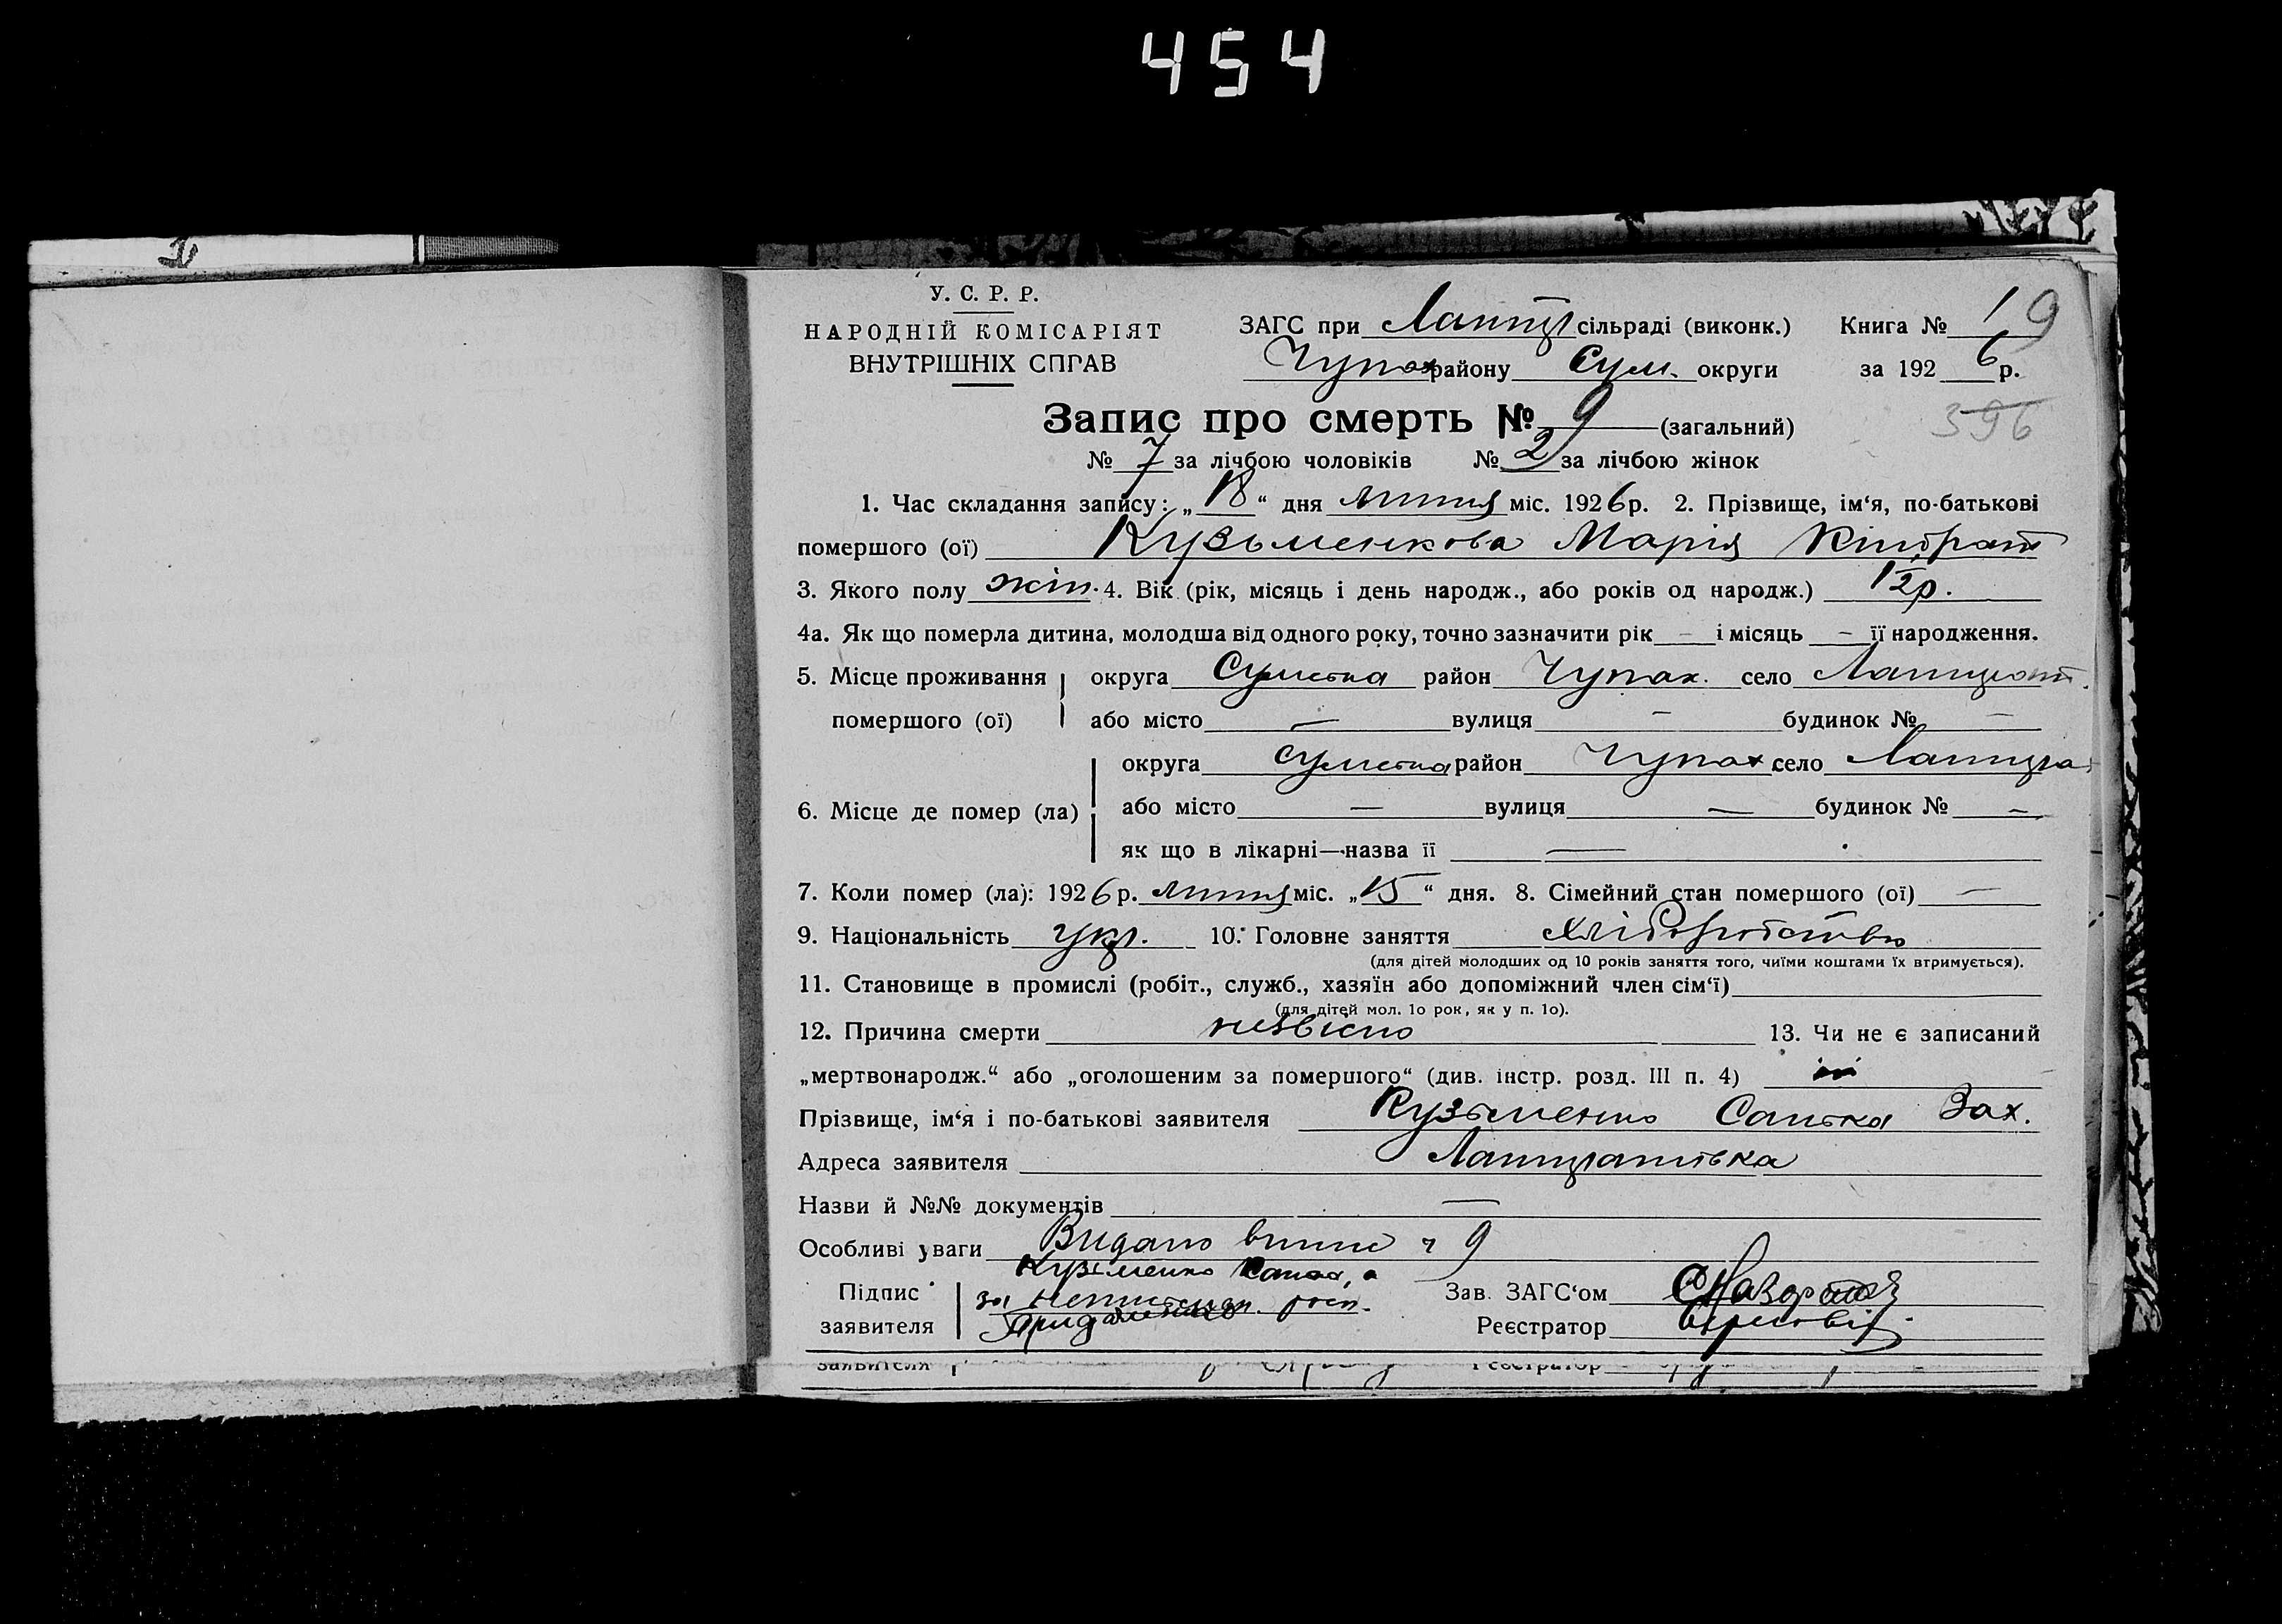 454
У. С. Р. Р.
НАРОДНІЙ КОМІСАРІЯТ
ВНУТРІШНІХ СПРАВ
ЗАГС при сільраді (виконк.) Книга № 1 9
Чупах району Сум. округи за 1926 р.
Запис про смерть № 9 (загальний)
396
№ 7 за лічбою чоловіків № 2 за лічбою жінок
1. Час складання запису: „18“ дня липня міс. 1926 р. 2. Прізвище, ім‘я, по-батькові
помершого (ої) Кузьменкова Марія Кіндрат
3. Якого полу жін. 4. Вік (рік, місяць і день народж., або років од народж.) 12р.
4а. Як що померла дитина, молодша від одного року, точно зазначити рік — і місяць — її народження.
5. Місце проживання помершого (ої) округа Сумська район Чупах. село
або місто — вулиця — будинок № —
6. Місце де помер (ла) округа Сумська район Чупах село
або місто — вулиця — будинок № —
як що в лікарні—назва її —
7. Коли помер (ла): 1926 р. липня міс. „15“ дня. 8. Сімейний стан помершого (ої) —
9. Національність Укр. 10. Головне заняття хліборобство
(для дітей молодших од 10 років заняття того, чиїми коштами їх втримується).
11. Становище в промислі (робіт., служб., хазяїн або допоміжний член сім‘ї)
(для дітей мол. 10 рок, як у п. 10).
12. Причина смерти незвісно 13. Чи не є записаний
„мертвонародж.“ або „оголошеним за помершого“ (див. інстр. розд. III п. 4) ні
Прізвище, ім‘я і по-батькові заявителя Кузьменко Санька Зах.
Адреса заявителя
Назви й №№ документів —
Особливі уваги Видано випис ч 9
Підпис заявителя Кузьменко за неписьмен. росп.
Зав. ЗАГС‘ом
Реєстратор
заявителя Реєстратор